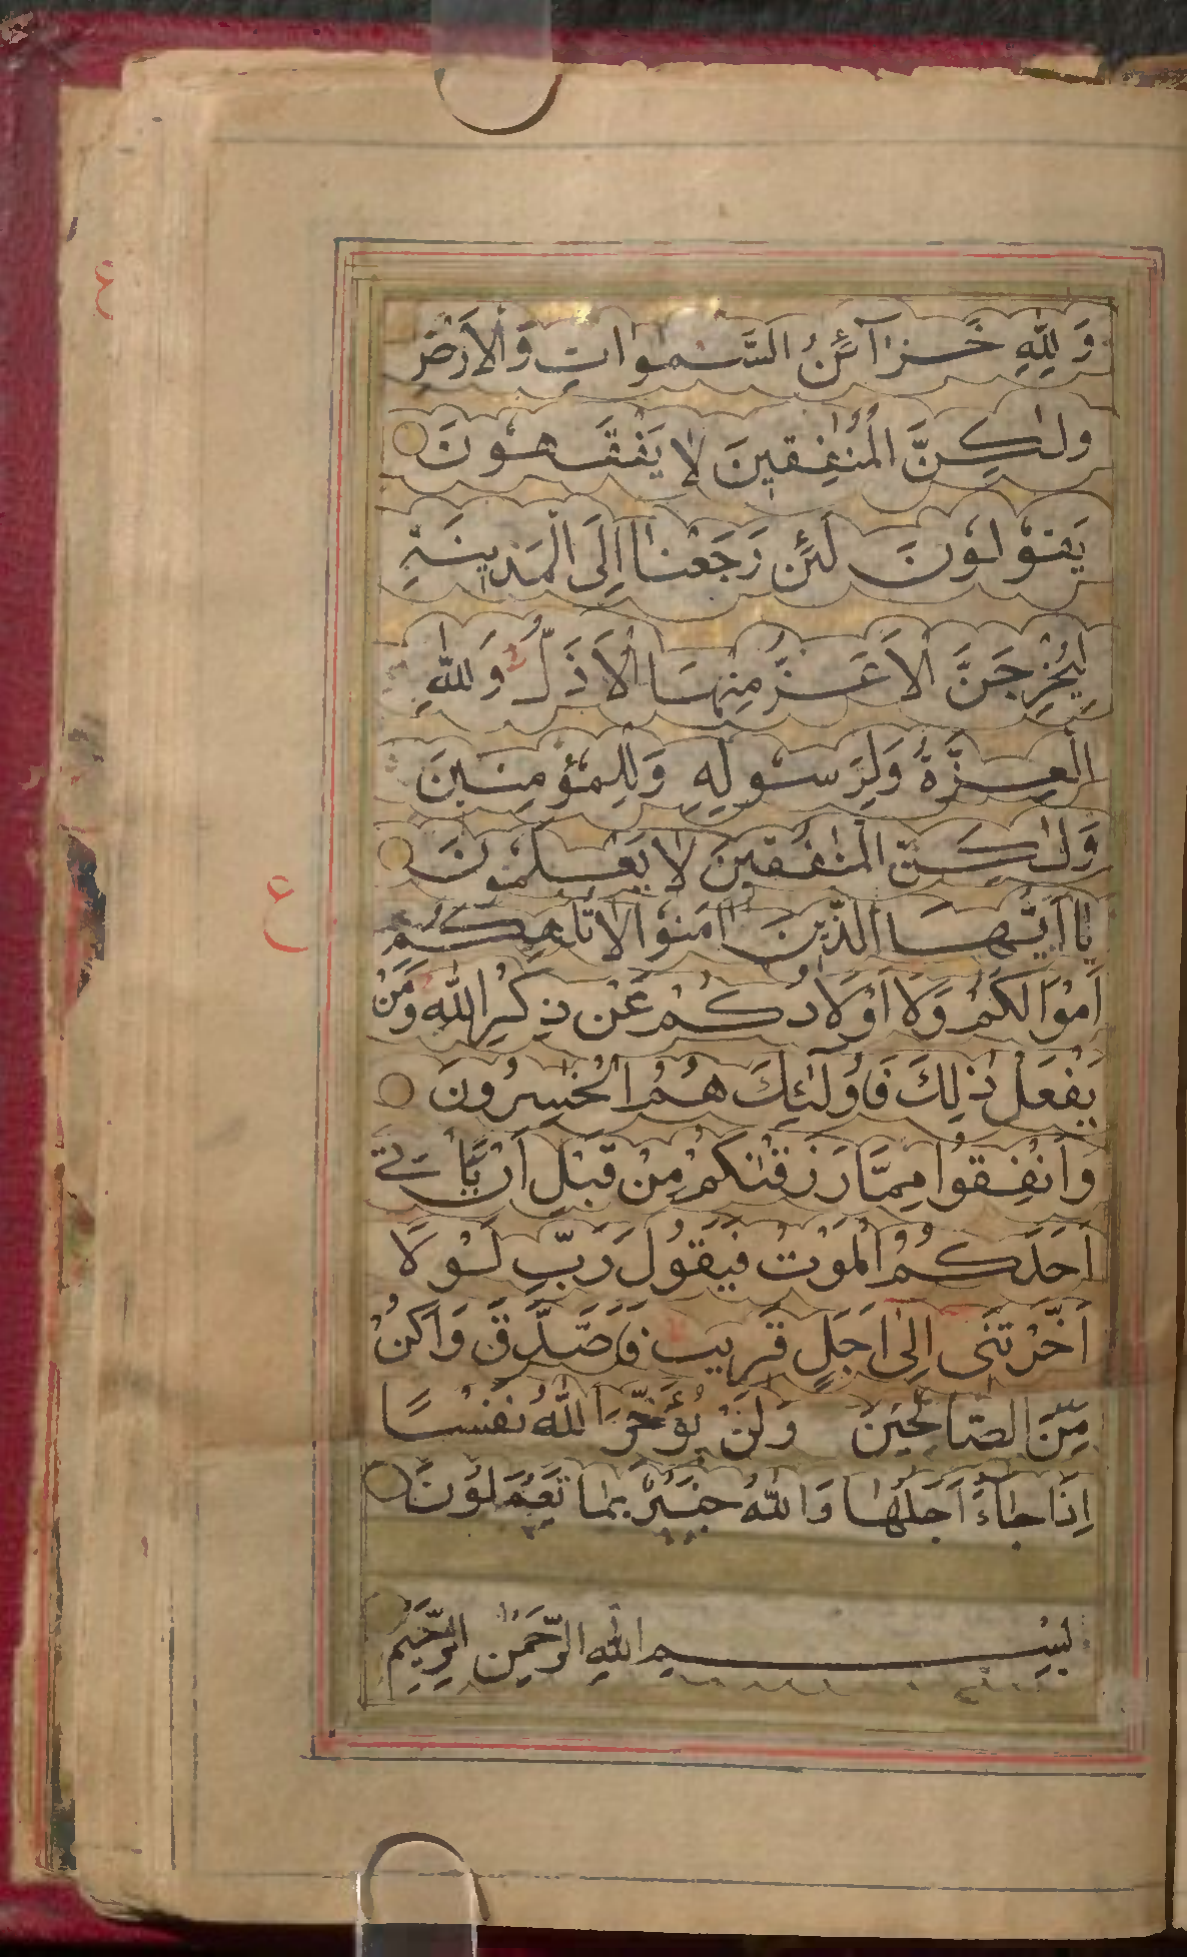 وَلِلّٰهِ خَزَآئِنُ السَّمٰوَاتِ وَالْاَرْضِ
وَلٰكِنَّ الْمُنٰفِقِينَ لَا يَفْقَهُونَ
يَقُولُونَ لَئِنْ رَجَعْنَا اِلَى الْمَدِينَةِ
لَيُخْرِجَنَّ الْاَعَزُّ مِنْهَا الْاَذَلَّ وَلِلّٰهِ
الْعِزَّةُ وَلِرَسُولِهِ وَلِلْمُؤْمِنِينَ
وَلٰكِنَّ الْمُنٰفِقِينَ لَا يَعْلَمُونَ
يَا اَيُّهَا الَّذِينَ اٰمَنُوا لَا تُلْهِكُمْ
اَمْوَالُكُمْ وَلَا اَوْلَادُكُمْ عَنْ ذِكْرِ اللّٰهِ وَمَنْ
يَفْعَلْ ذٰلِكَ فَاُولٰئِكَ هُمُ الْخٰسِرُونَ
وَاَنْفِقُوا مِمَّا رَزَقْنٰكُمْ مِنْ قَبْلِ اَنْ يَّاْتِىَ
اَحَدَكُمُ الْمَوْتُ فَيَقُولَ رَبِّ لَوْلَا
اَخَّرْتَنِى اِلٰى اَجَلٍ قَرِيبٍ فَاَصَّدَّقَ وَاَكُنْ
مِّنَ الصَّالِحِينَ وَلَنْ يُؤَخِّرَ اللّٰهُ نَفْسًا
اِذَا جَاءَ اَجَلُهَا وَاللّٰهُ خَبِيرٌ بِمَا تَعْمَلُونَ
بِسْمِ اللّٰهِ الرَّحْمٰنِ الرَّحِيمِ
ع
ع